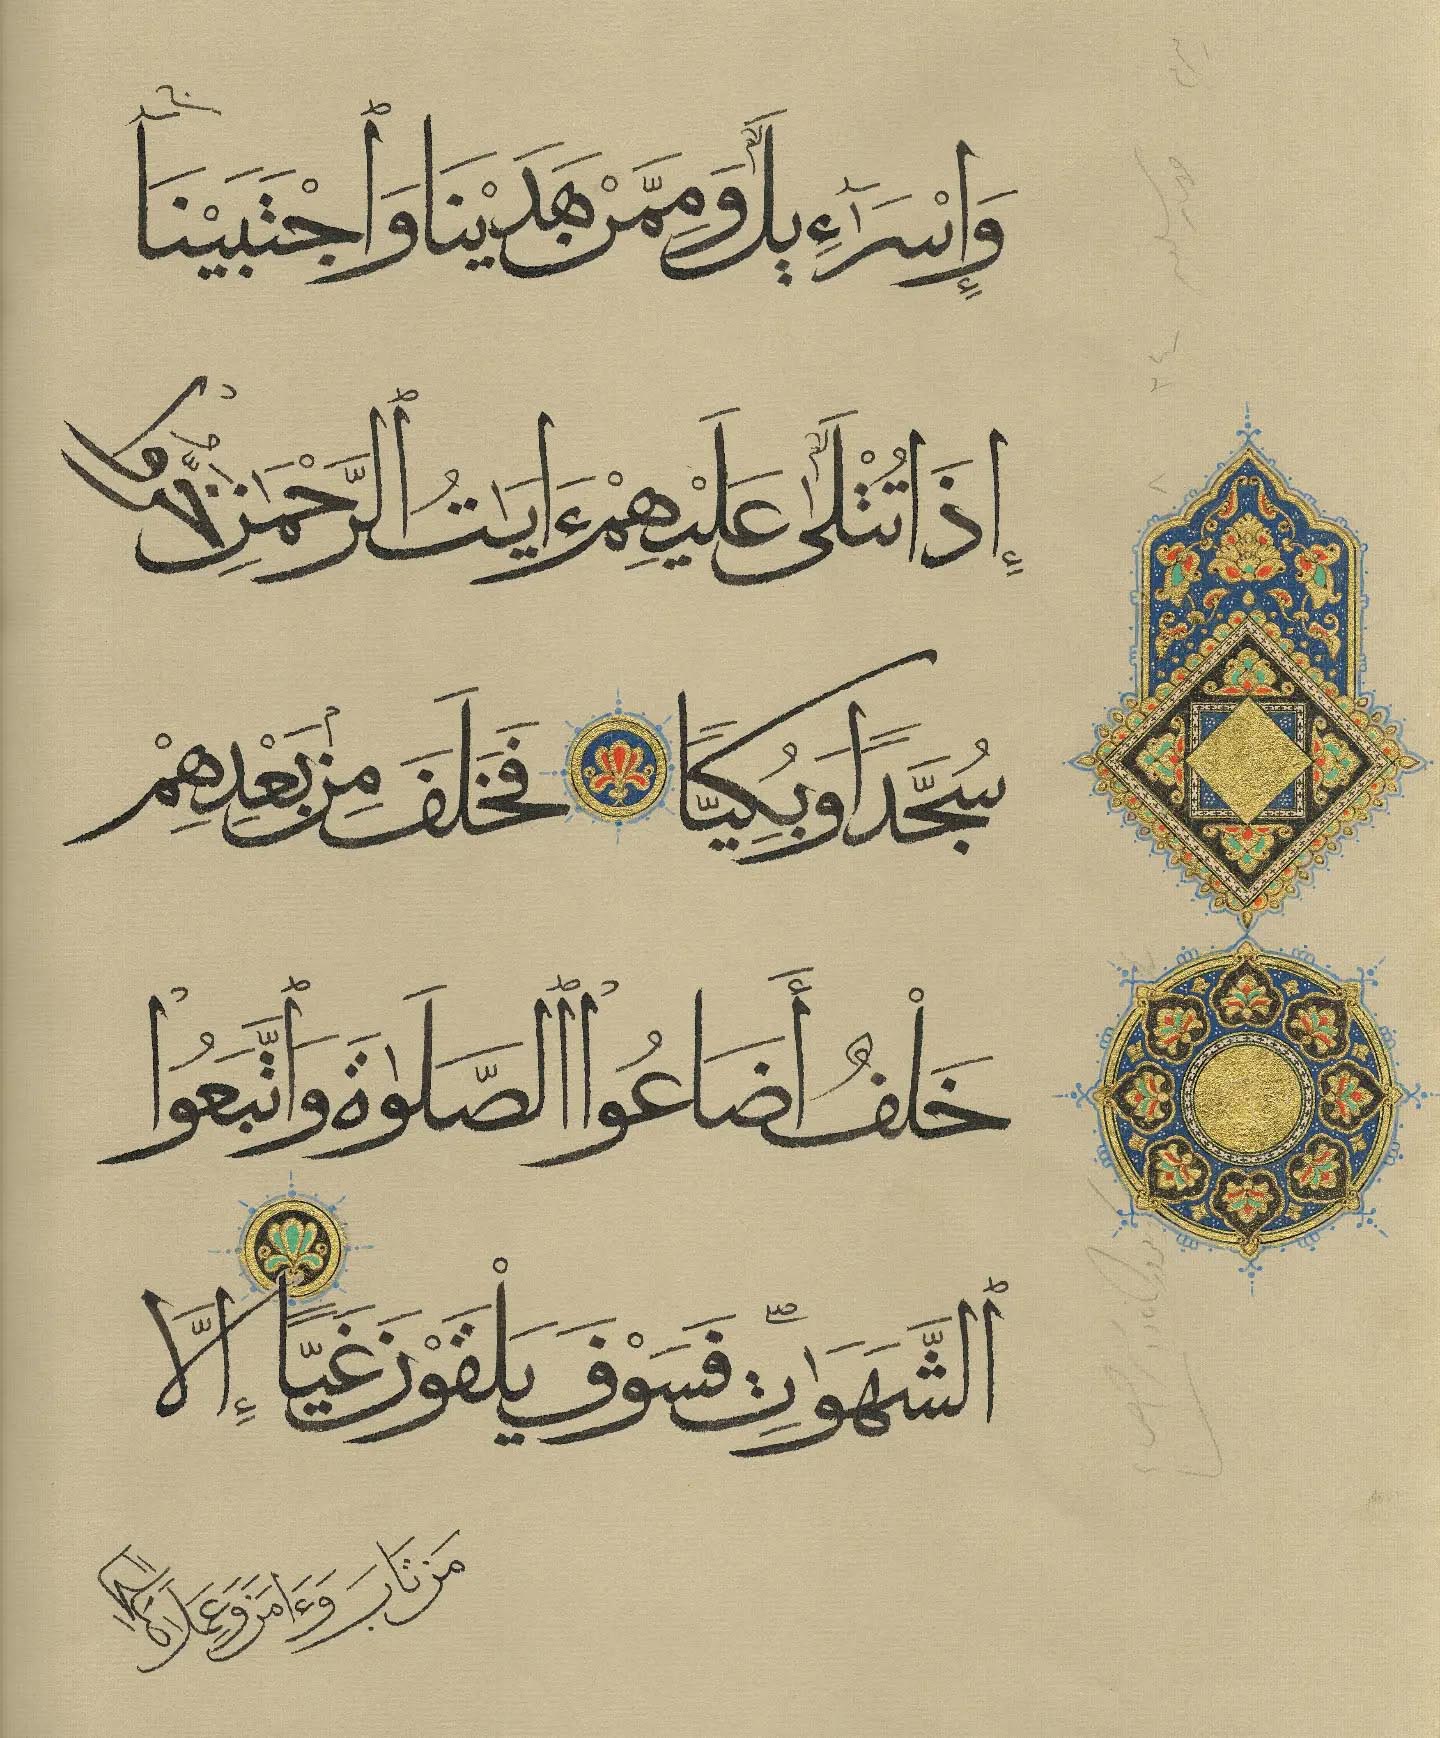 وَإِسْرَآءِيلَ وَمِمَّنْ هَدَيْنَا وَٱجْتَبَيْنَآ
إِذَا تُتْلَىٰ عَلَيْهِمْ ءَايَٰتُ ٱلرَّحْمَٰنِ خَرُّوا۟
سُجَّدًا وَبُكِيًّا فَخَلَفَ مِنۢ بَعْدِهِمْ
خَلْفٌ أَضَاعُوا۟ ٱلصَّلَوٰةَ وَٱتَّبَعُوا۟
ٱلشَّهَوَٰتِ فَسَوْفَ يَلْقَوْنَ غَيًّا إِلَّا
مَن تَابَ وَءَامَنَ وَعَمِلَ